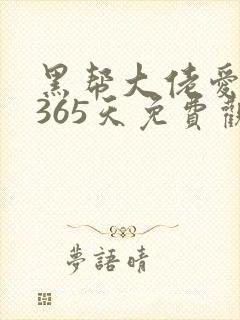 黑帮大佬爱
365天免費觀
夢語晴